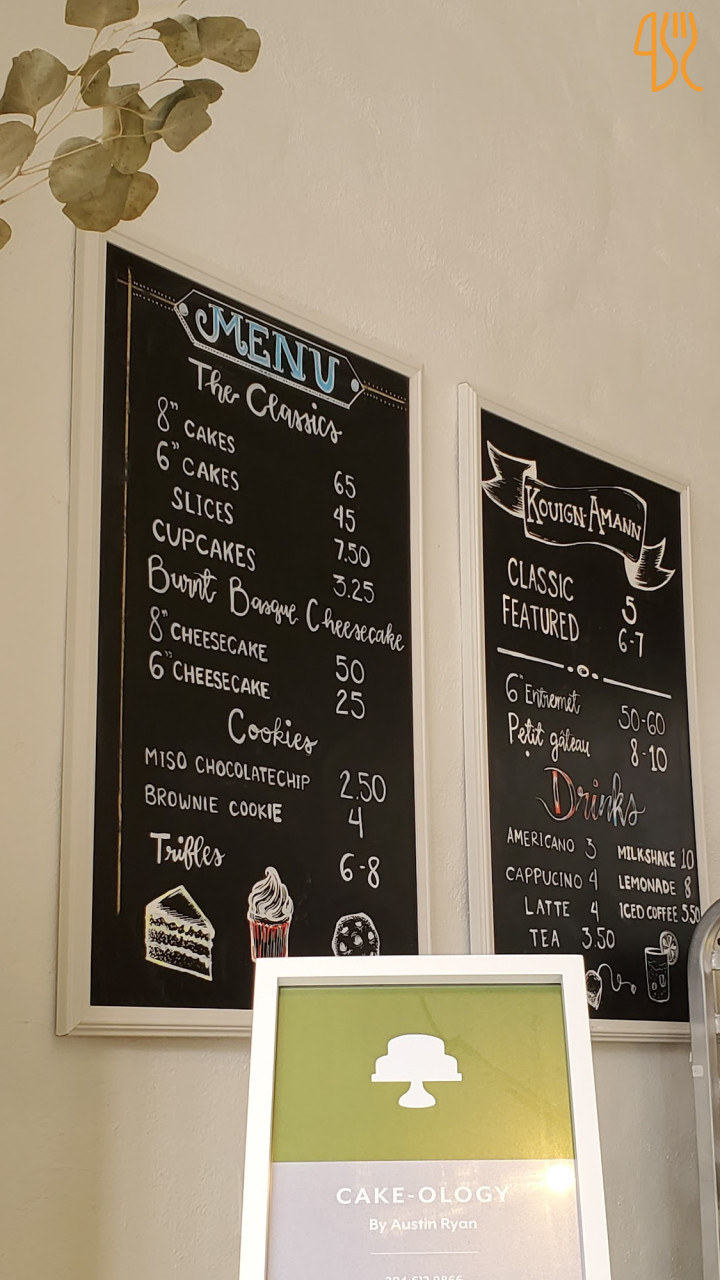 MENU
The Classics
8" CAKES 65
6" CAKES 45
SLICES 7.50
CUPCAKES 3.25
Burnt Basque Cheesecake
8" CHEESECAKE 50
6" CHEESECAKE 25
Cookies
MISO CHOCOLATECHIP 2.50
BROWNIE COOKIE 4
Trifles 6-8
KOUIGN-AMANN
CLASSIC 5
FEATURED 6-7
6" Entremet 50-60
Petit gâteau 8-10
Drinks
AMERICANO 3 MILKSHAKE 10
CAPPUCINO 4 LEMONADE 8
LATTE 4 ICED COFFEE 5.50
TEA 3.50
CAKE-OLOGY
By Austin Ryan